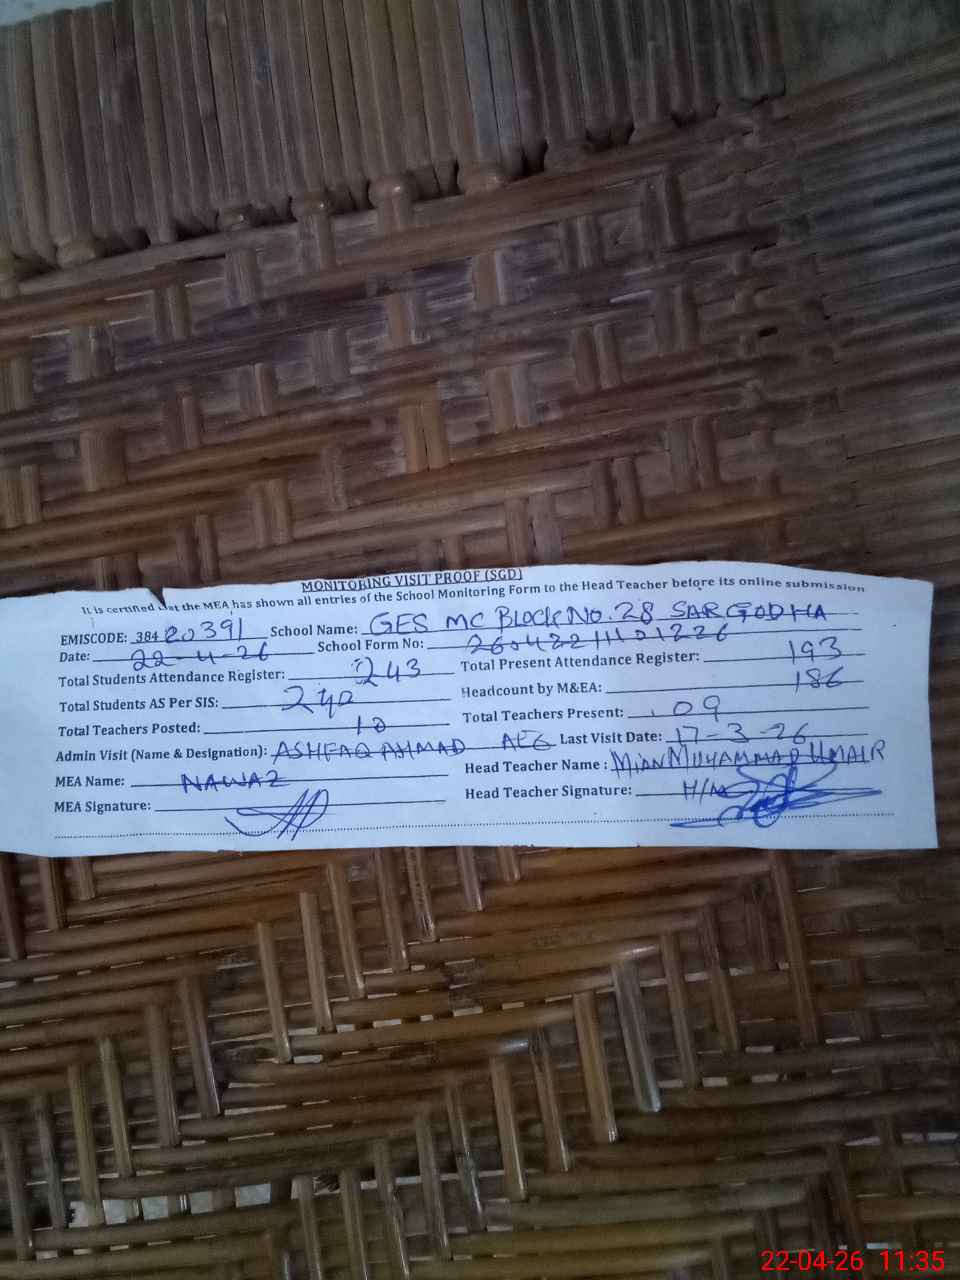 MONITORING VISIT PROOF (SGD)
It is certified that the MEA has shown all entries of the School Monitoring Form to the Head Teacher before its online submission
EMISCODE: 38420391 School Name: GES MC Block No. 28 SARGODHA
Date: 22-4-26 School Form No:
Total Students Attendance Register: 243 Total Present Attendance Register: 193
Total Students AS Per SIS: 240 Headcount by M&EA: 186
Total Teachers Posted: 10 Total Teachers Present: 09
Admin Visit (Name & Designation): ASHFAQ AHMAD AEO Last Visit Date: 17-3-26
MEA Name: NAWAZ Head Teacher Name: MIAN MUHAMMAD UMAIR
MEA Signature: Head Teacher Signature: H/M
22-04-26 11:35